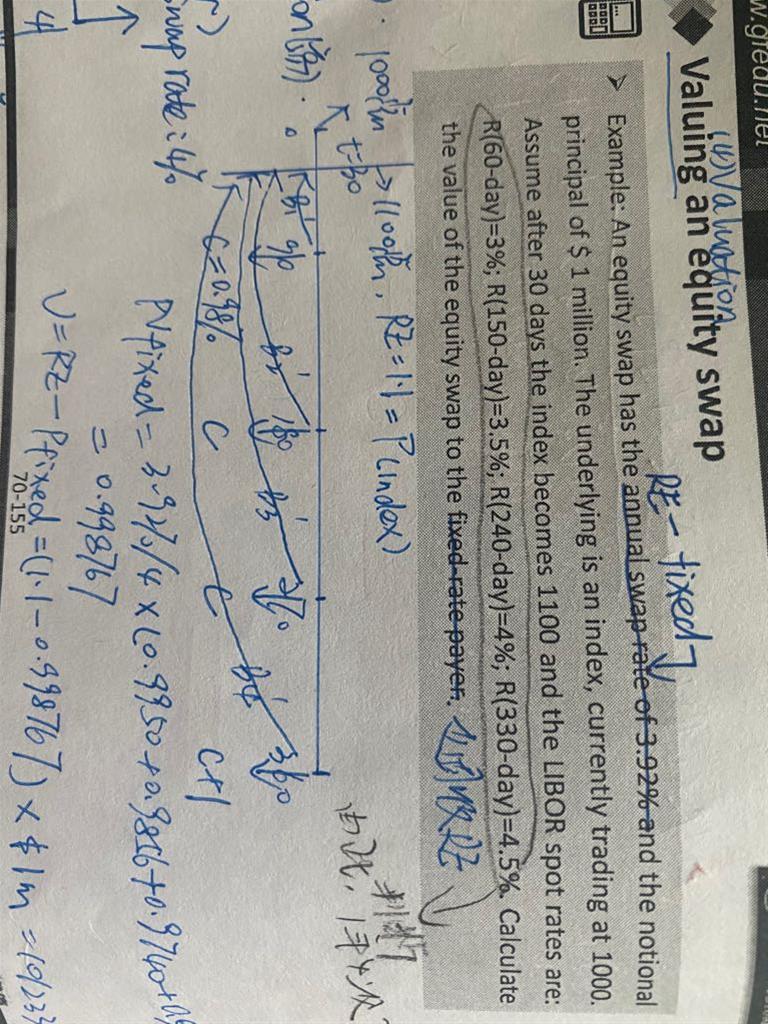 w.gfedu.net
(4) Valuation
Valuing an equity swap
RE - fixed
➤ Example: An equity swap has the annual swap rate of 3.92% and the notional
principal of $ 1 million. The underlying is an index, currently trading at 1000.
Assume after 30 days the index becomes 1100 and the LIBOR spot rates are:
R(60-day)=3%; R(150-day)=3.5%; R(240-day)=4%; R(330-day)=4.5%. Calculate
the value of the equity swap to the fixed-rate payer.
t=30
RE=1.1=P(index)
B1' B2' B3' B4'
90 180 270 360
C=0.98% C C C+1
swap rate: 4%
PVfixed = 3.92%/4 × (0.9950+0.9856+0.9740+
= 0.998767
V=RE-Pfixed=(1.1-0.998767) × $1m =10123
70-155